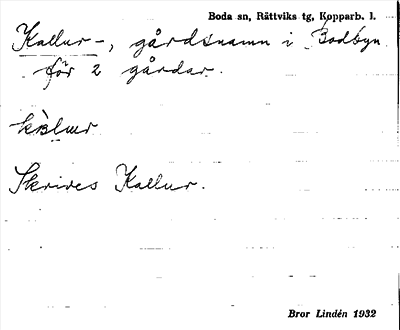 Boda sn, Rättviks tg, Kopparb. l.
Kallur-, gårdsnamn i Bodbyn
för 2 gårdar.
Skrives Kallur.
Bror Lindén 1932